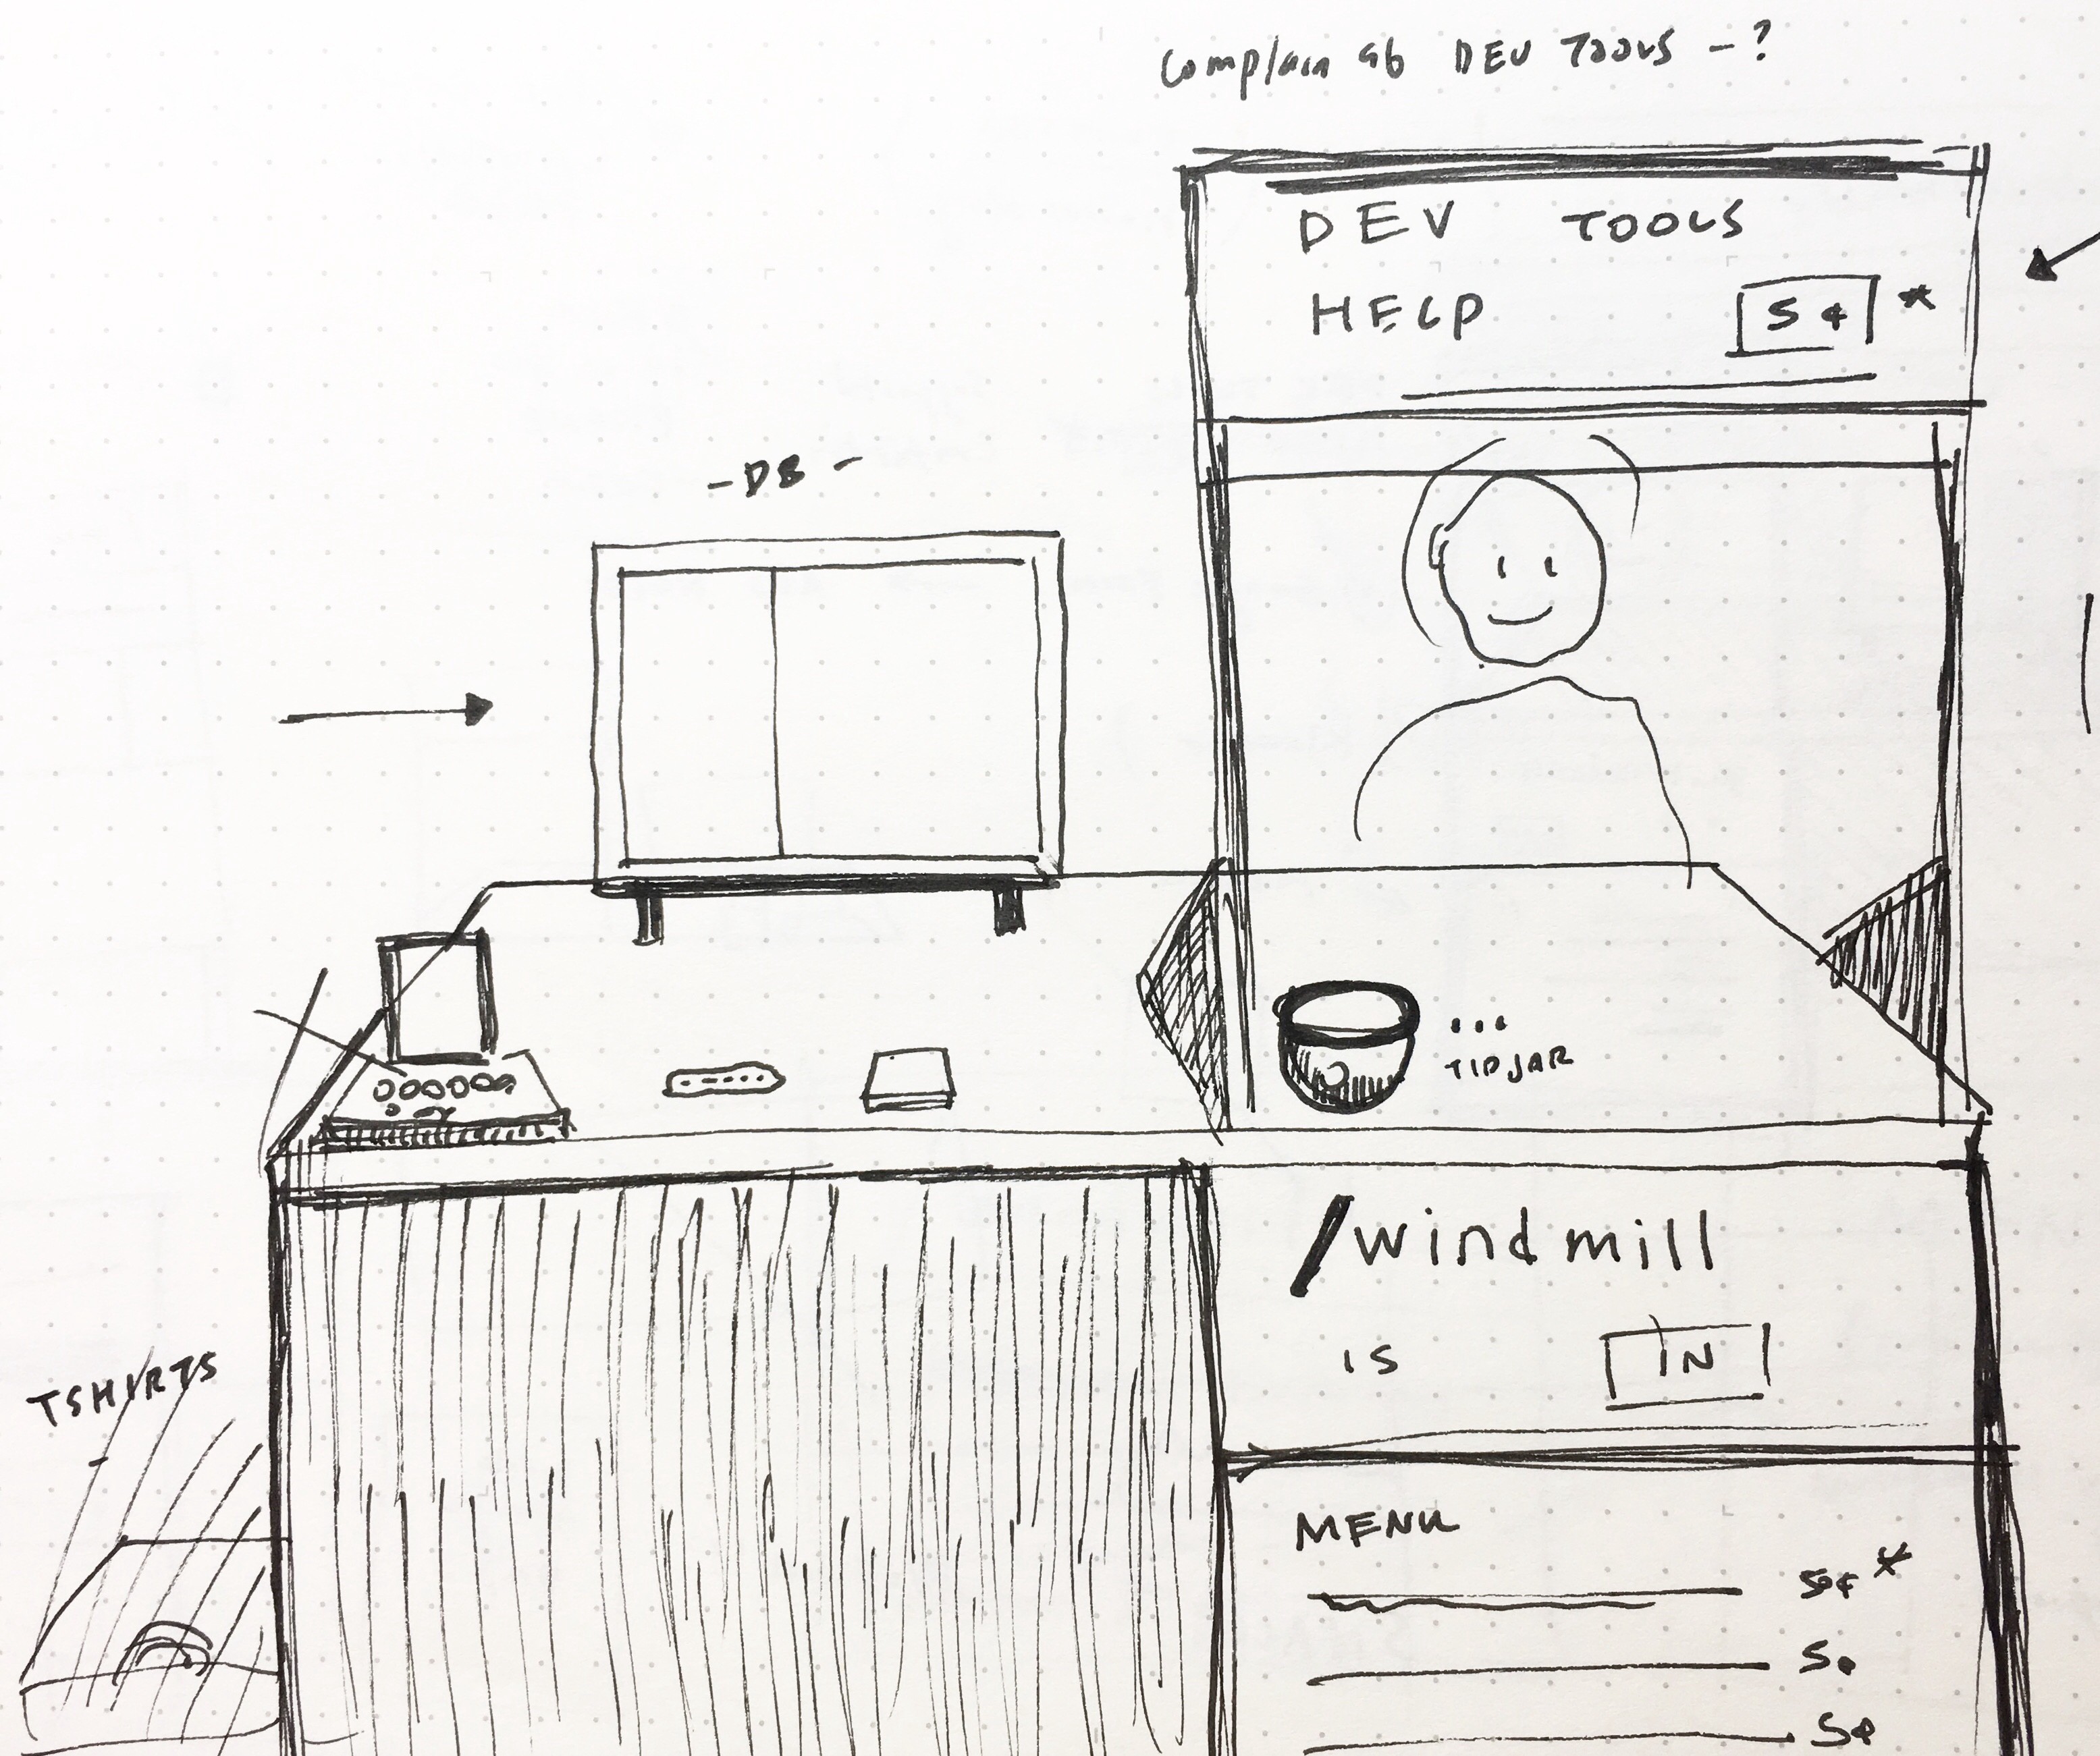 Complain ab DEV TOOLS - ?
DEV TOOLS
HELP 5¢ *
- DB -
...
TIPJAR
/windmill
IS IN
TSHIRTS
-
MENU
5¢ *
5¢
5¢